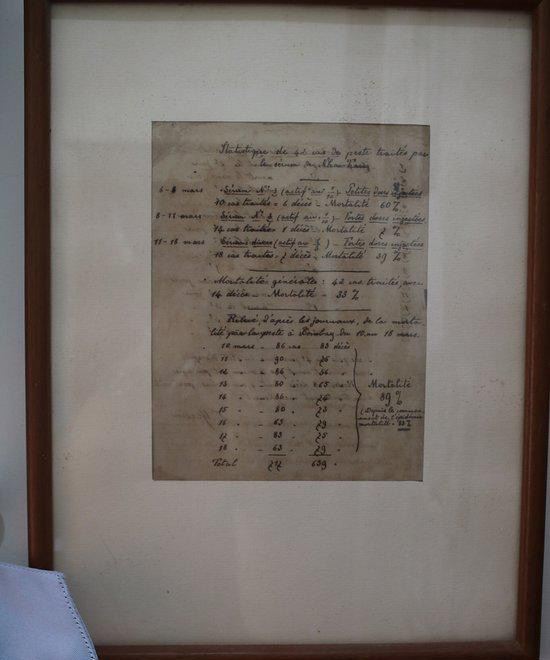 Statistique de 42 cas de peste traités par
le sérum de Nha-Trang
6-8 mars - Sérum Nº 3 (actif au 1/10) - Petites doses injectées
10 cas traités = 6 décès - Mortalité 60 %
8-11 mars - Sérum Nº 3 (actif au - Fortes doses injectées
14 cas traités 1 décès Mortalité 7 %
11-18 mars - Sérums divers (actif au - Fortes doses injectées
18 cas traités - 7 décès - Mortalité 39 %
Mortalité générale : 42 cas traités avec
14 décès - Mortalité - 33 %
Relevé, d'après les journaux, de la morta
lité par la peste à Bombay du 10 au 18 mars.
10 mars - 86 cas 83 décès
11 " " 90 " 76 "
12 " " 86 " "
13 " " 80 " 65 "
14 " " 86 " 76 "
15 " " 80 " 73 "
16 " " 63 " 79 "
17 " " 83 " 75 "
18 " " 63 " 79 "
Total 717 " 639 "
Mortalité
89 %
(Depuis le commen
cement de l'épidémie
mortalité = 83 %